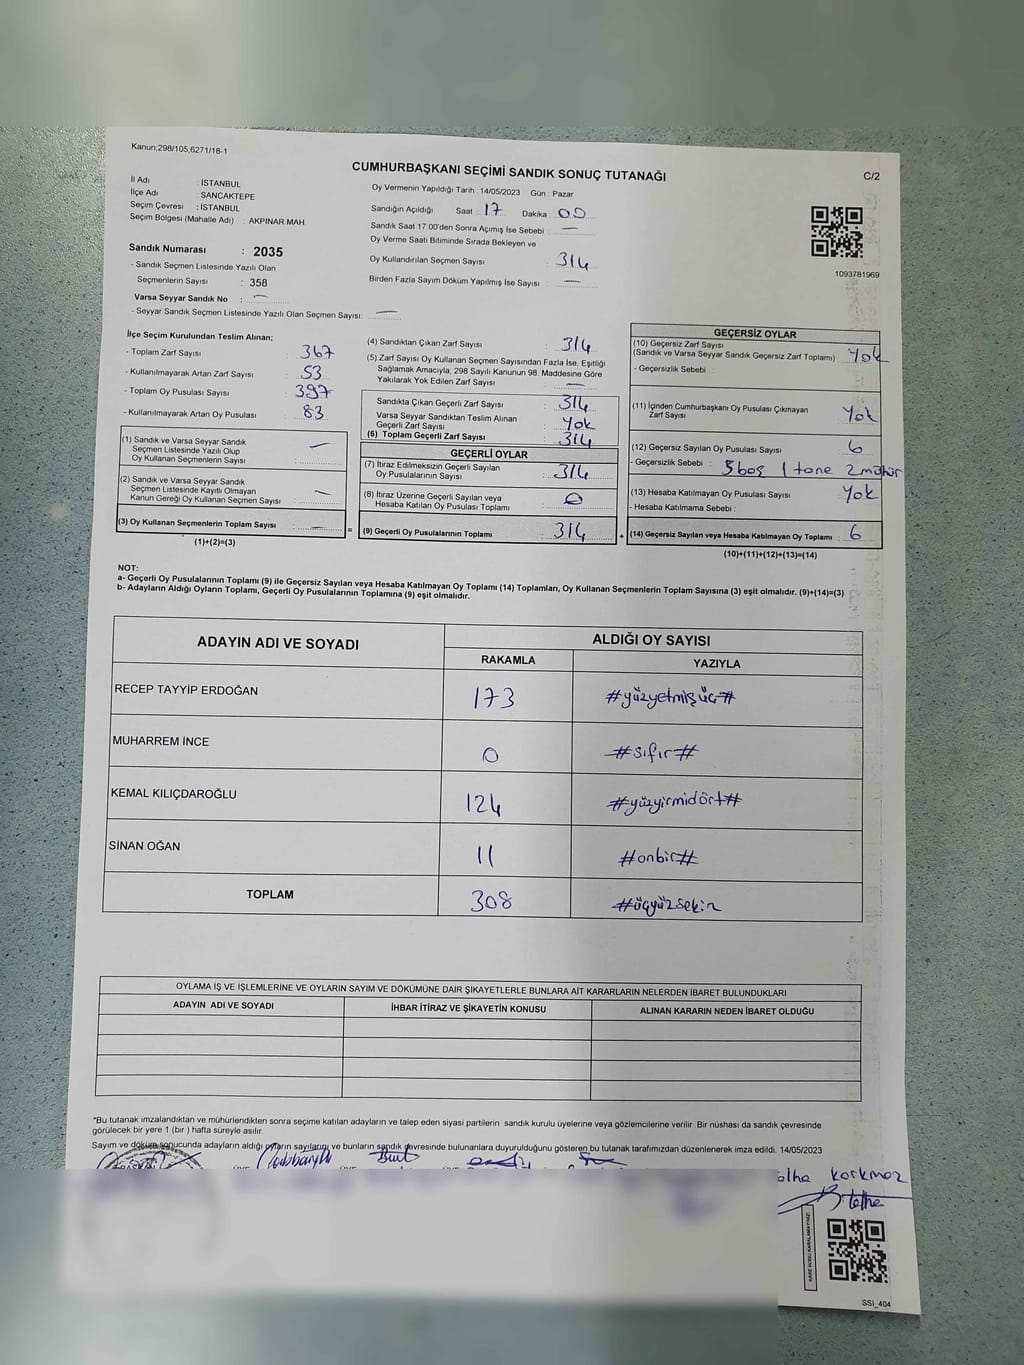 Kanun;298/105;6271/18-1
CUMHURBAŞKANI SEÇİMİ SANDIK SONUÇ TUTANAĞI
C/2
İl Adı : İSTANBUL
İlçe Adı : SANCAKTEPE
Seçim Çevresi : İSTANBUL
Seçim Bölgesi (Mahalle Adı) : AKPINAR MAH.
Sandık Numarası : 2035
- Sandık Seçmen Listesinde Yazılı Olan
Seçmenlerin Sayısı : 358
Varsa Seyyar Sandık No : —
- Seyyar Sandık Seçmen Listesinde Yazılı Olan Seçmen Sayısı: —
Oy Vermenin Yapıldığı Tarih : 14/05/2023 Gün : Pazar
Sandığın Açıldığı Saat : 17 Dakika : 00
Sandık Saat 17:00'den Sonra Açımış İse Sebebi : —
Oy Verme Saati Bitiminde Sırada Bekleyen ve
Oy Kullandırılan Seçmen Sayısı : 314
Birden Fazla Sayım Döküm Yapılmış İse Sayısı : —
1093781969
İlçe Seçim Kurulundan Teslim Alınan;
- Toplam Zarf Sayısı : 367
- Kullanılmayarak Artan Zarf Sayısı : 53
- Toplam Oy Pusulası Sayısı : 397
- Kullanılmayarak Artan Oy Pusulası : 83
(1) Sandık ve Varsa Seyyar Sandık
Seçmen Listesinde Yazılı Olup
Oy Kullanan Seçmenlerin Sayısı : —
(2) Sandık ve Varsa Seyyar Sandık
Seçmen Listesinde Kayıtlı Olmayan
Kanun Gereği Oy Kullanan Seçmen Sayısı : —
(3) Oy Kullanan Seçmenlerin Toplam Sayısı : — =
(1)+(2)=(3)
(4) Sandıktan Çıkan Zarf Sayısı : 314
(5) Zarf Sayısı Oy Kullanan Seçmen Sayısından Fazla İse, Eşitliği
Sağlamak Amacıyla; 298 Sayılı Kanunun 98. Maddesine Göre
Yakılarak Yok Edilen Zarf Sayısı : —
Sandıkta Çıkan Geçerli Zarf Sayısı : 314
Varsa Seyyar Sandıktan Teslim Alınan
Geçerli Zarf Sayısı : Yok
(6) Toplam Geçerli Zarf Sayısı : 314
GEÇERLİ OYLAR
(7) İtiraz Edilmeksizin Geçerli Sayılan
Oy Pusulalarının Sayısı : 314
(8) İtiraz Üzerine Geçerli Sayılan veya
Hesaba Katılan Oy Pusulası Toplamı : 0
(9) Geçerli Oy Pusulalarının Toplamı : 314 +
GEÇERSİZ OYLAR
(10) Geçersiz Zarf Sayısı
(Sandık ve Varsa Seyyar Sandık Geçersiz Zarf Toplamı) : Yok
- Geçersizlik Sebebi :
(11) İçinden Cumhurbaşkanı Oy Pusulası Çıkmayan
Zarf Sayısı : Yok
(12) Geçersiz Sayılan Oy Pusulası Sayısı : 6
- Geçersizlik Sebebi : 5 boş 1 tane 2 mühür
(13) Hesaba Katılmayan Oy Pusulası Sayısı : Yok
- Hesaba Katılmama Sebebi :
(14) Geçersiz Sayılan veya Hesaba Katılmayan Oy Toplamı : 6
(10)+(11)+(12)+(13)=(14)
NOT:
a- Geçerli Oy Pusulalarının Toplamı (9) ile Geçersiz Sayılan veya Hesaba Katılmayan Oy Toplamı (14) Toplamları, Oy Kullanan Seçmenlerin Toplam Sayısına (3) eşit olmalıdır. (9)+(14)=(3)
b- Adayların Aldığı Oyların Toplamı, Geçerli Oy Pusulalarının Toplamına (9) eşit olmalıdır.
ADAYIN ADI VE SOYADI
ALDIĞI OY SAYISI
RAKAMLA YAZIYLA
RECEP TAYYİP ERDOĞAN 173 #yüzyetmişüç#
MUHARREM İNCE 0 #sıfır#
KEMAL KILIÇDAROĞLU 124 #yüzyirmidört#
SİNAN OĞAN 11 #onbir#
TOPLAM 308 #üçyüzsekiz
OYLAMA İŞ VE İŞLEMLERİNE VE OYLARIN SAYIM VE DÖKÜMÜNE DAİR ŞİKAYETLERLE BUNLARA AİT KARARLARIN NELERDEN İBARET BULUNDUKLARI
ADAYIN ADI VE SOYADI İHBAR İTİRAZ VE ŞİKAYETİN KONUSU ALINAN KARARIN NEDEN İBARET OLDUĞU
*Bu tutanak imzalandıktan ve mühürlendikten sonra seçime katılan adayların ve talep eden siyasi partilerin sandık kurulu üyelerine veya gözlemcilerine verilir. Bir nüshası da sandık çevresinde
görülecek bir yere 1 (bir ) hafta süreyle asılır.
Sayım ve döküm sonucunda adayların aldığı oyların sayılarını ve bunların sandık çevresinde bulunanlara duyurulduğunu gösteren bu tutanak tarafımızdan düzenlenerek imza edildi. 14/05/2023
BAŞKAN
korkmaz
Talha
KARE KODU KARALAMAYINIZ!
SSI_404